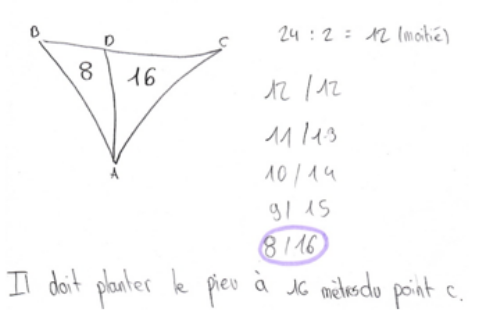 B D C
8 16
A
24 : 2 = 12 (moitié)
12 / 12
11 / 13
10 / 14
9 / 15
8 / 16
Il doit planter le pieu à 16 mètres du point C.